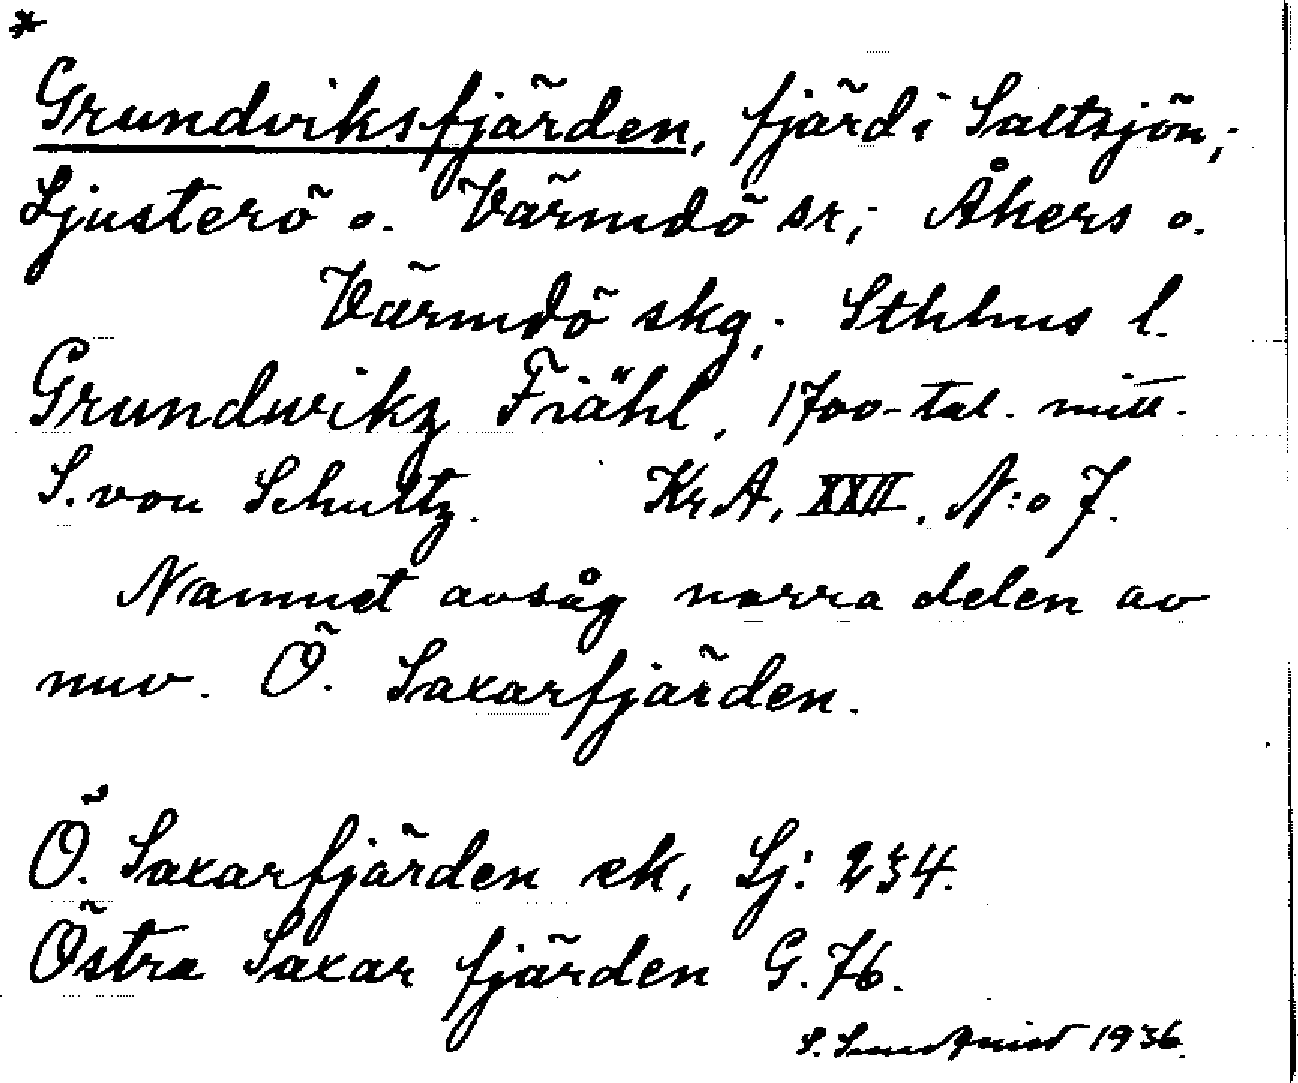 *
Grundviksfjärden, fjärd i Saltsjön;
Ljusterö o. Värmdö sr; Åkers o.
Värmdö skg; Sthlms l.
Grundwikz Fiähl, 1700-tal. mitt.
S. von Schultz. Kr A, XXII. N:o 7.
Namnet avsåg norra delen av
nuv. Ö. Saxarfjärden.
Ö. Saxarfjärden ek, Lj: 234.
Östra Saxar fjärden G. 76.
S. 1936.